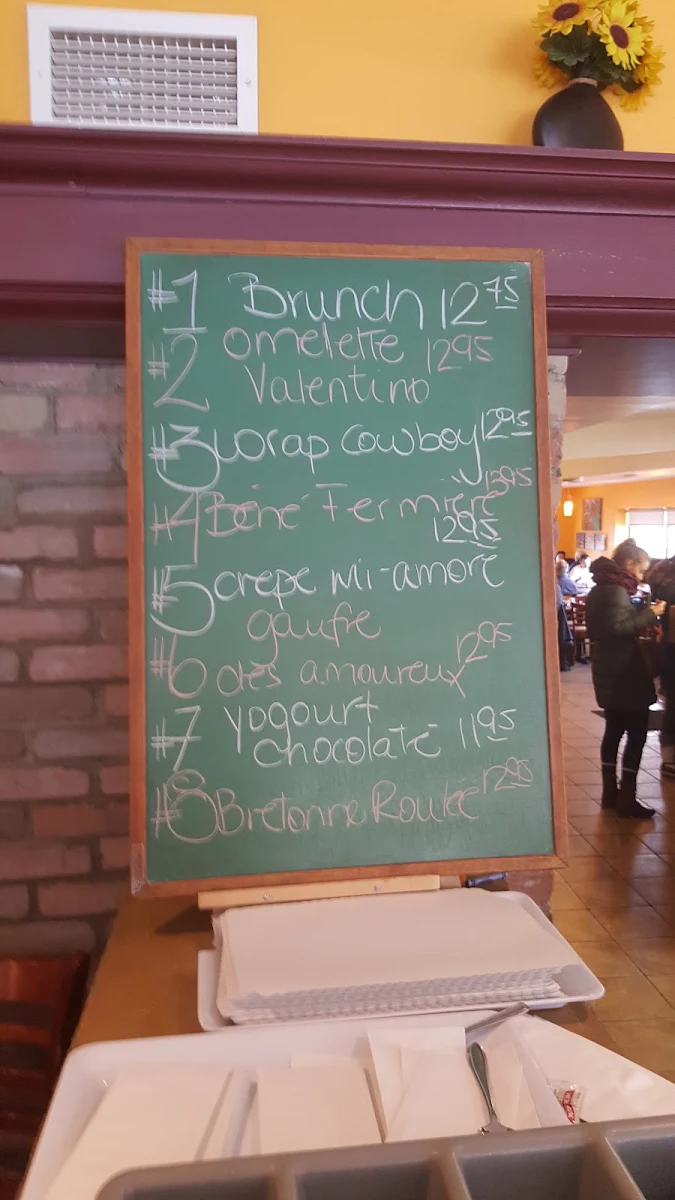 #1 Brunch 12 75
#2 omelette 12 95
Valentino
#3 Worap Cowboy 12 95
#4 Béné Fermière 13 95
12 95
#5 crepe Mi-amore
gaufre
#6 des amoureux 12 95
#7 yogourt
chocolate 11 95
#8 Bretonne Roulée 12 95